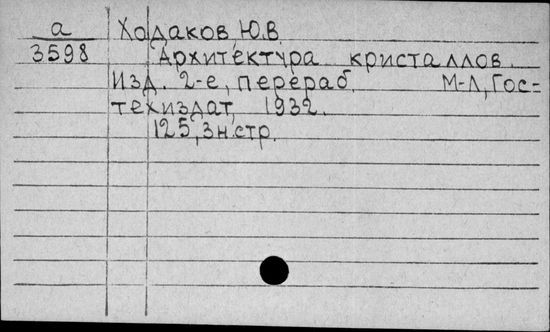 а Ходаков Ю.В.
3598 Архитектура кристаллов.
Изд. 2-е, перераб. М-Л, Гос=
техиздат, 1932.
125, 3 н. стр.